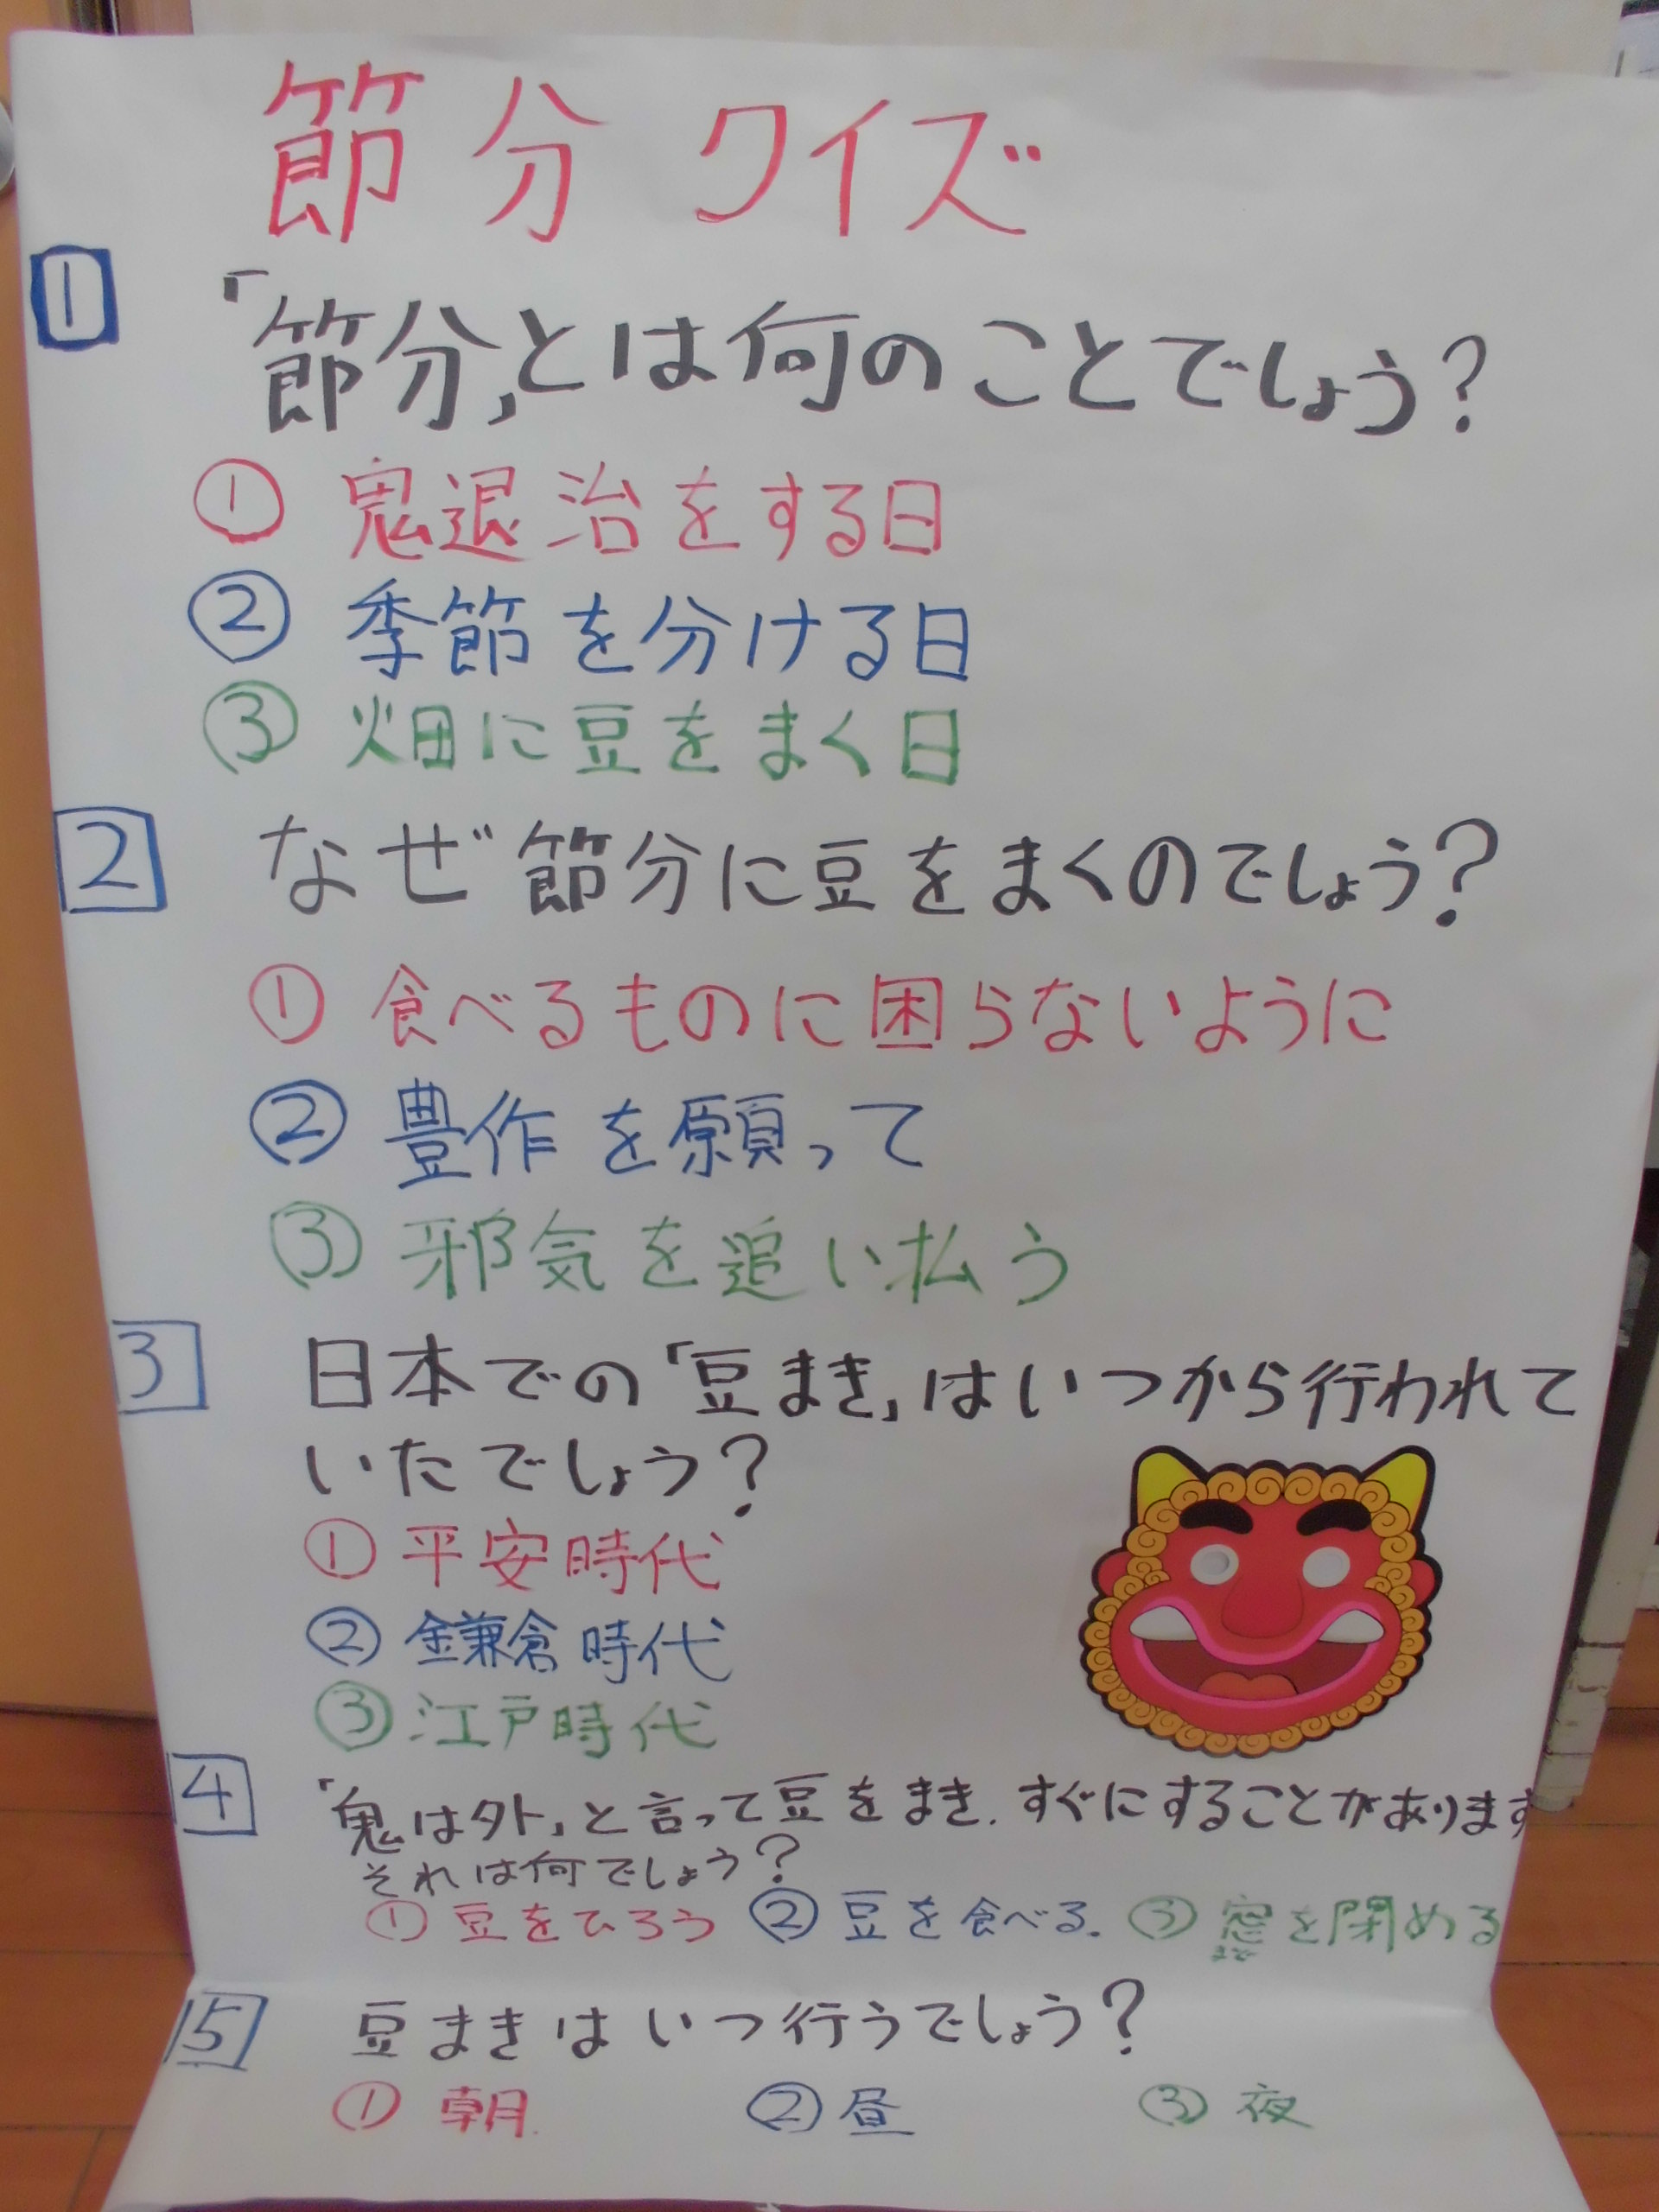 節分 クイズ
1 「節分」とは何のことでしょう?
① 鬼退治をする日
② 季節を分ける日
③ 畑に豆をまく日
2 なぜ節分に豆をまくのでしょう?
① 食べるものに困らないように
② 豊作を願って
③ 邪気を追い払う
3 日本での「豆まき」はいつから行われて
いたでしょう?
① 平安時代
② 鎌倉時代
③ 江戸時代
4 「鬼は外」と言って豆をまき、すぐにすることがあります
それは何でしょう?
① 豆をひろう ② 豆を食べる。 ③ 窓を閉める
まど
5 豆まきはいつ行うでしょう?
① 朝 ② 昼 ③ 夜